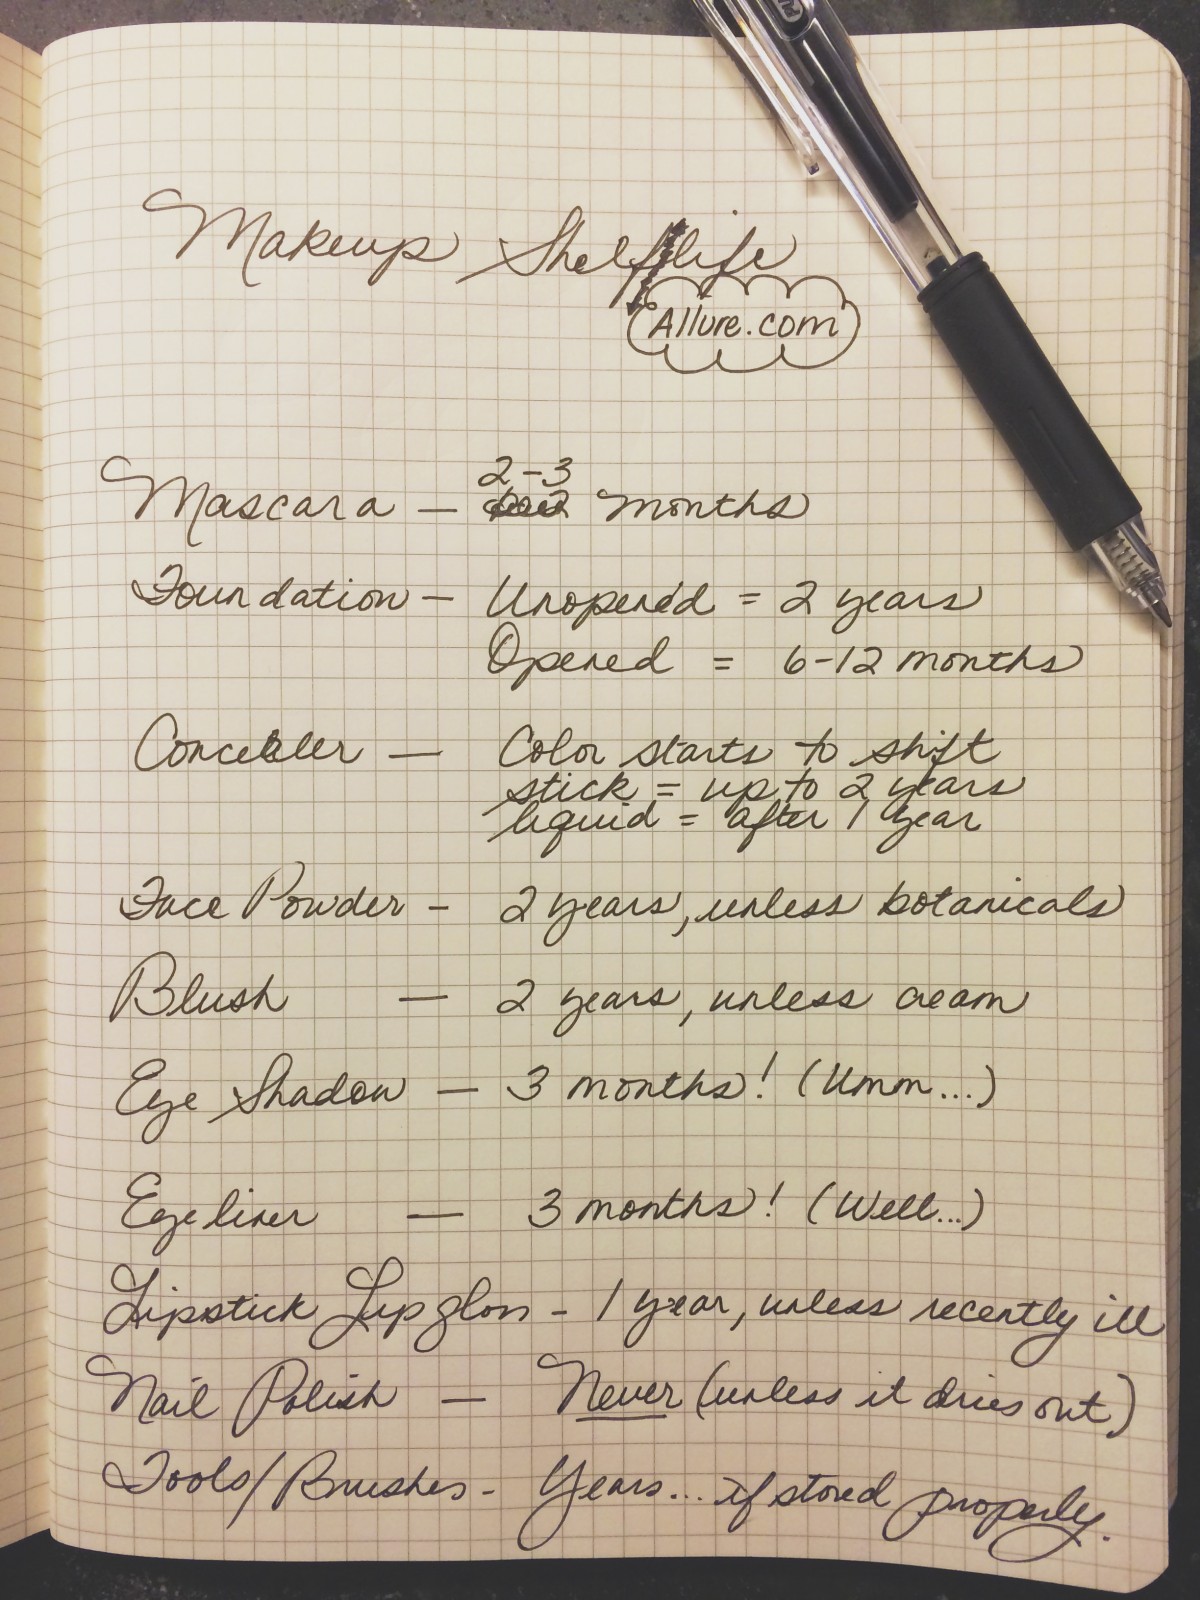 Makeup Shelflife
Allure.com
2-3
Mascara — months
Foundation — Unopened = 2 years
Opened = 6-12 months
Concealer — Color starts to shift
stick = up to 2 years
liquid = after 1 year
Face Powder - 2 years, unless botanicals
Blush — 2 years, unless cream
Eye Shadow — 3 months! (Umm...)
Eyeliner — 3 months! (Well...)
Lipstick Lipgloss - 1 year, unless recently ill
Nail Polish — Never (unless it dries out)
Tools/Brushes - Years... if stored properly.